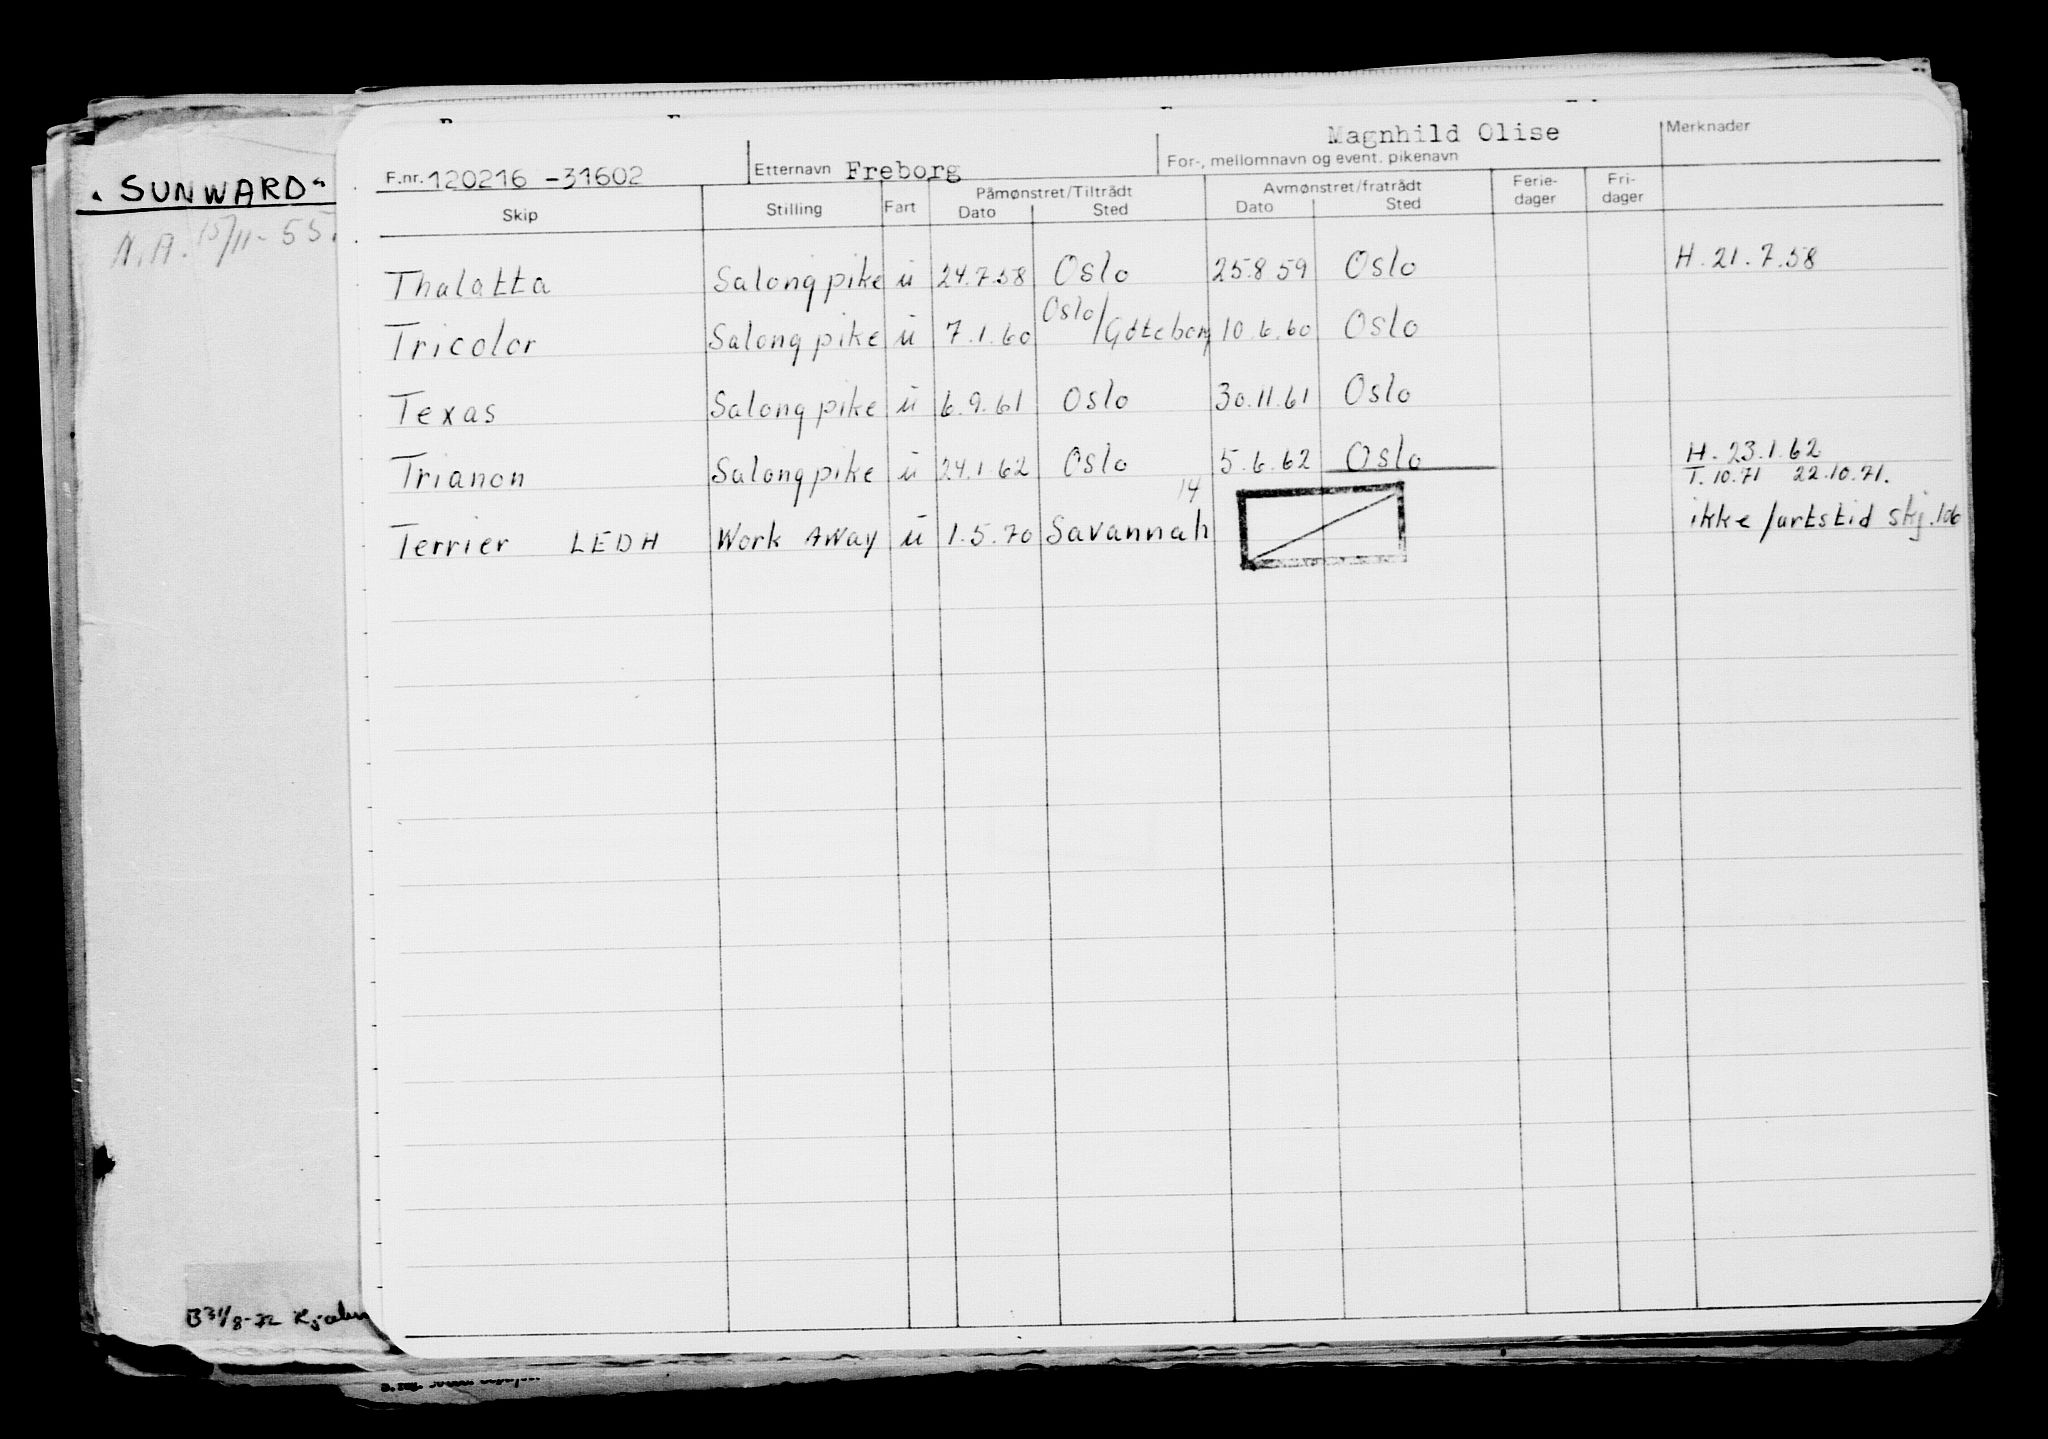 "SUNWARD"
N.A. 15/11-55.
Magnhild Olise
Merknader
F.nr. 120216 -31602 Etternavn Freborg For-, mellomnavn og event. pikenavn
Skip Stilling Fart Påmønstret/Tiltrådt Dato Sted Avmønstret/fratrådt Dato Sted Ferie-dager Fri-dager
Thalatta Salongpike u 24.7.58 Oslo 25.8 59 Oslo H. 21.7.58
Tricolor Salongpike u 7.1.60 Oslo/Göteborg 10.6.60 Oslo
Texas Salongpike u 6.9.61 Oslo 30.11.61 Oslo
Trianon Salongpike u 24.1.62 Oslo 5.6.62 Oslo H. 23.1.62
T. 10.71 22.10.71.
14
Terrier LEDH Work AWay u 1.5.70 Savannah ikke fartstid skj.106
B 31/8-72